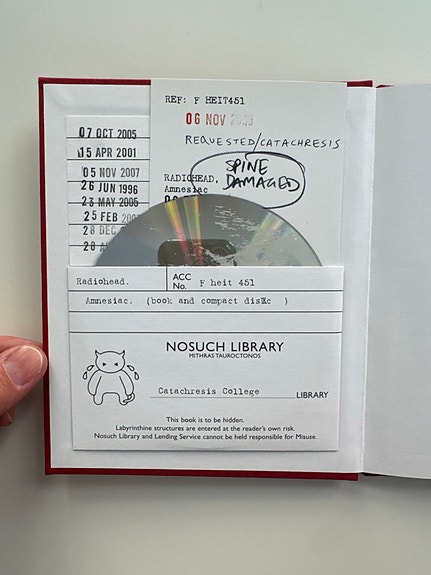 REF: F HEIT451
06 NOV
REQUESTED/CATACHRESIS
SPINE
DAMAGED
RADIOHEAD,
Amnesiac
07 OCT 2005
15 APR 2001
05 NOV 2007
26 JUN 1996
23 MAY 2005
25 FEB
28 DEC
28
Radiohead.
ACC
No. F heit 451
Amnesiac. (book and compact disc )
NOSUCH LIBRARY
MITHRAS TAUROCTONOS
Catachresis College
LIBRARY
This book is to be hidden.
Labyrinthine structures are entered at the reader's own risk.
Nosuch Library and Lending Service cannot be held responsible for Misuse.